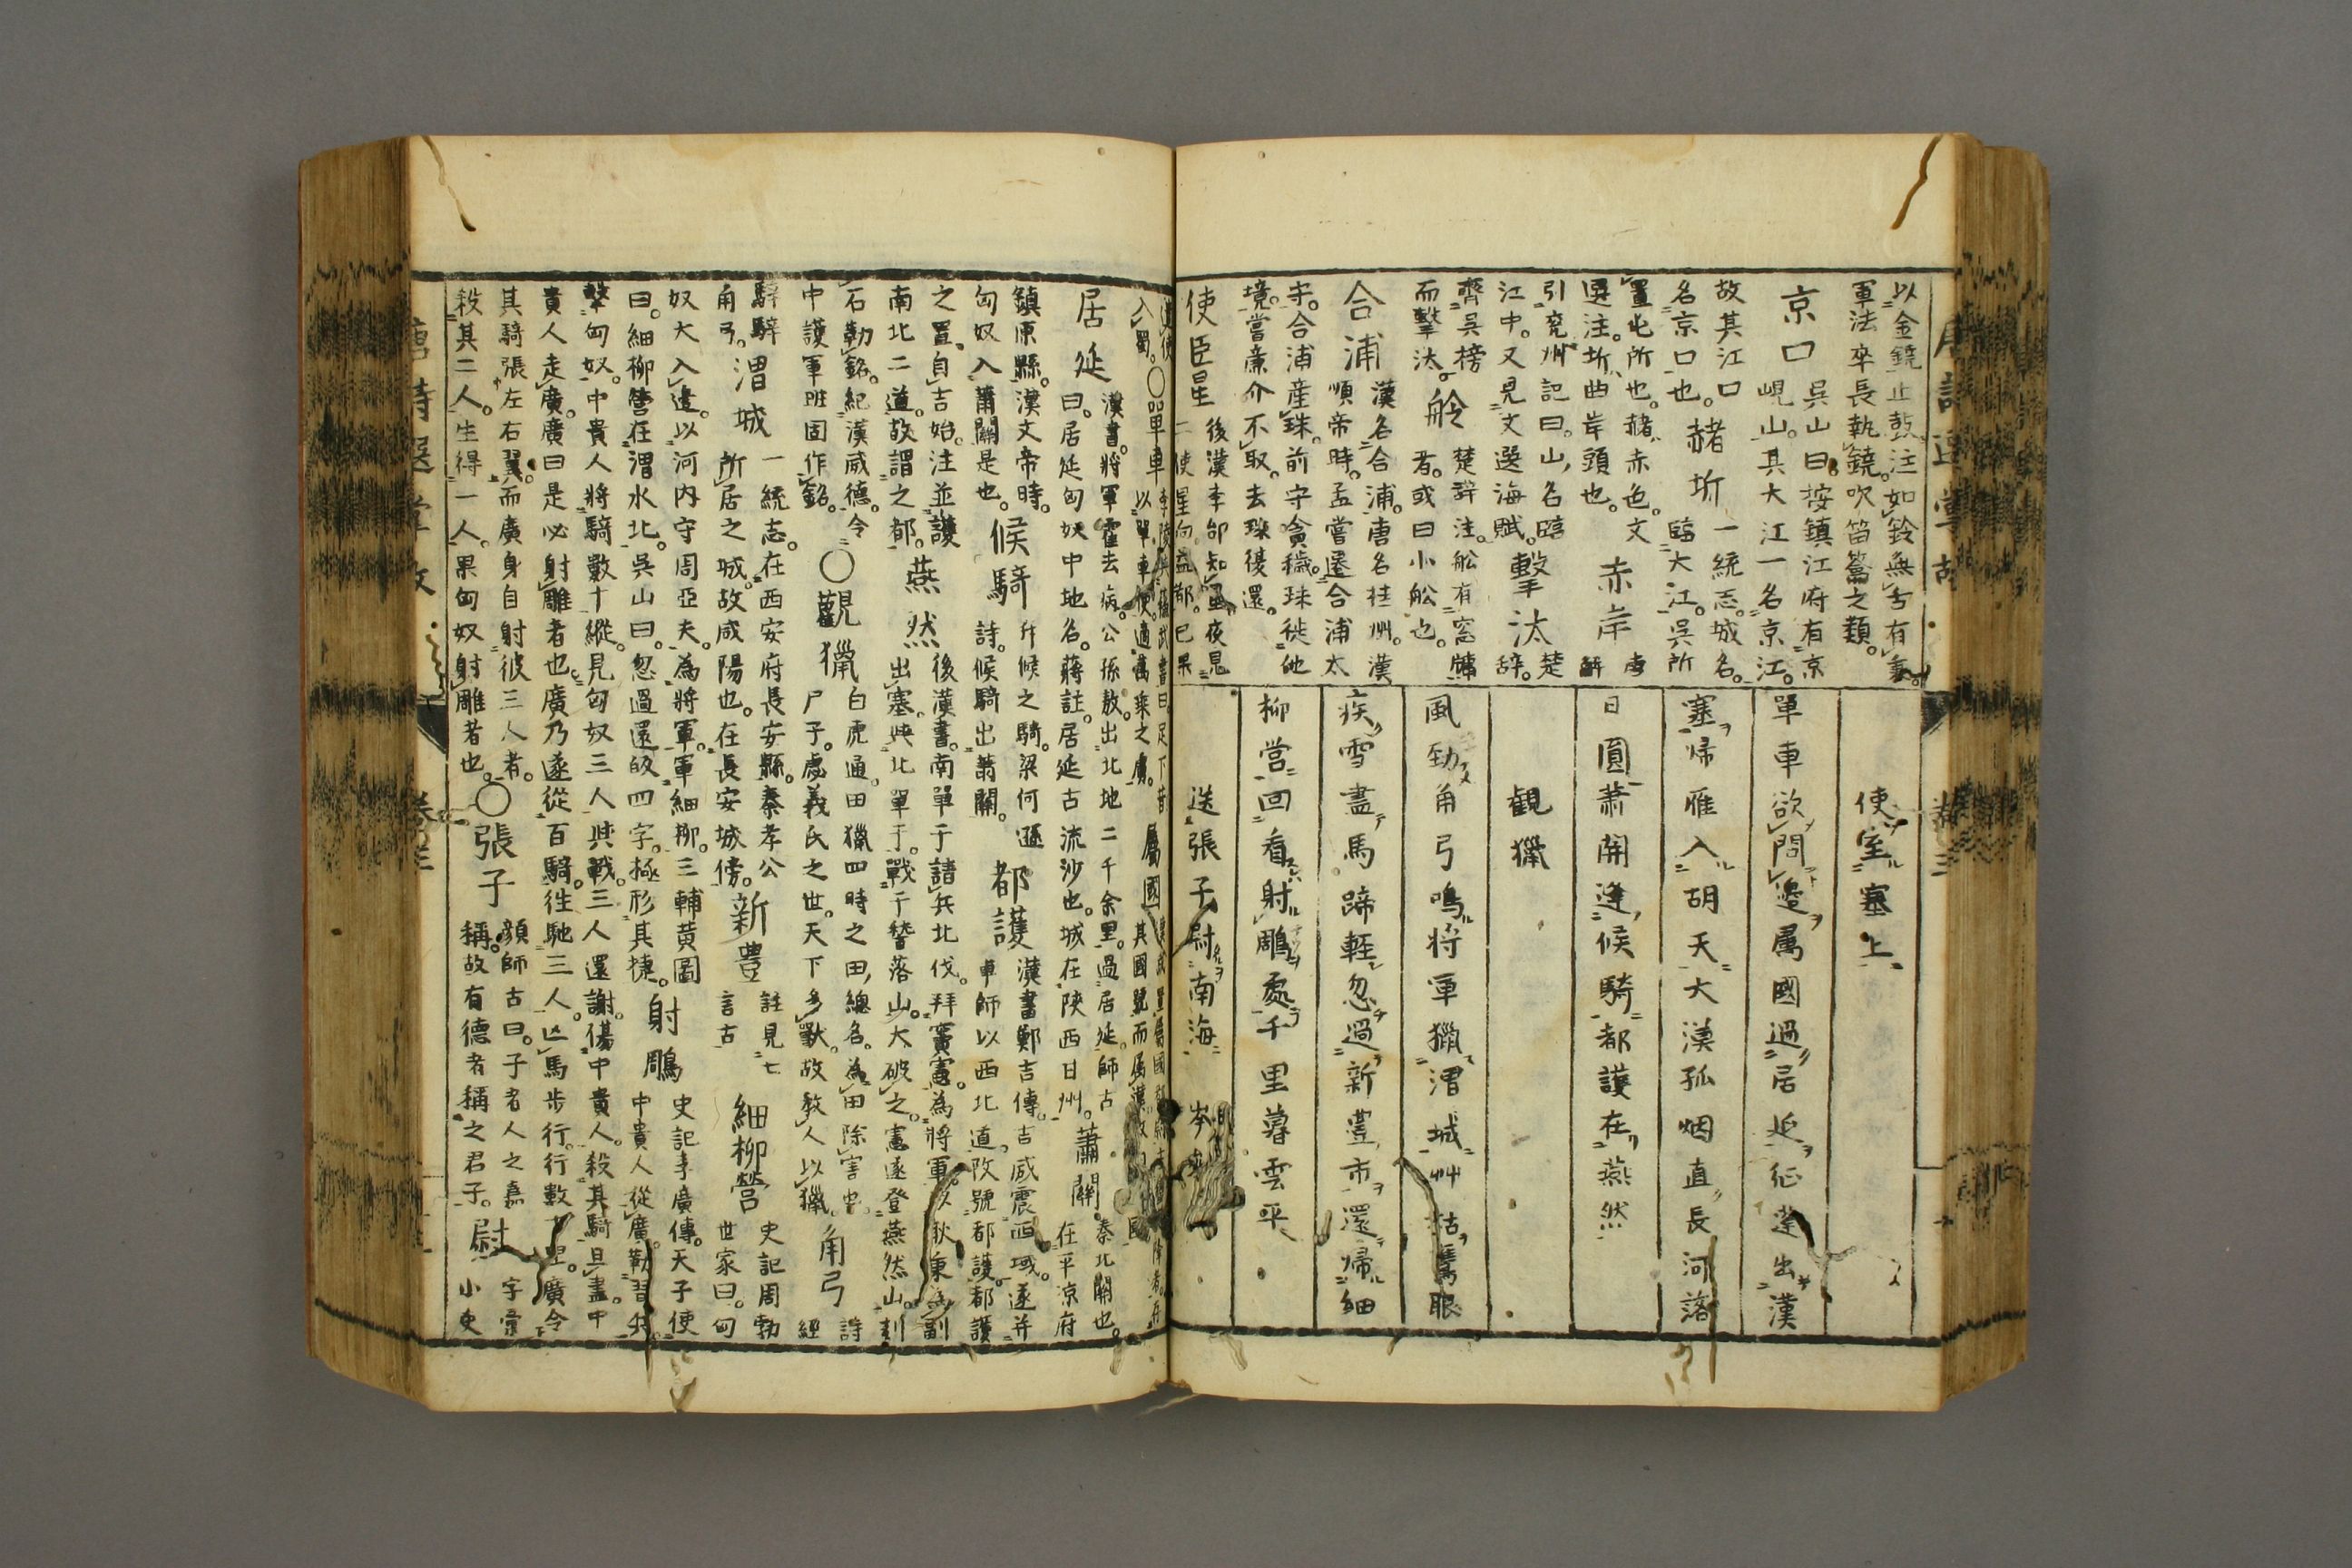 唐詩選掌故
以金鐃止鼓。注如鈴無舌有秉。
軍法卒長執鐃。吹笛篙之類。
京口
吳山曰。按鎮江府有京
峴山。其大江一名京江。
故其江口
名京口也。
赭圻
一統志。城名。
臨大江。吳所
置屯所也。赭赤色。文
選注。圻曲岸頭也。
赤岸
引兗州記曰。山名臨
江中。又見文選海賦。
擊汰
楚
辞。
齊吳榜
而擊汰。
舲
楚辞注。舩有窓牖
者。或曰小舩也。
合浦
漢名合浦。唐名桂州。漢
順帝時。孟嘗遷合浦太
守。合浦産珠。前守貪穢。珠徙他
境。嘗廉介不取。去珠復還。
使臣星
後漢李郃知夜見
二使星向益都。已果
使至塞上
單車欲問邊属國過居延征蓬出漢
塞帰雁入胡天大漠孤烟直長河落
日圓蕭関逢候騎都護在燕然
観獵
風勁角弓鳴将軍獵渭城艸枯鷹眼
疾雪盡馬蹄軽忽過新豊市還帰細
柳営回看射鵰處千里暮雲平
送張子尉南海 岑參
漢使
入蜀。
〇單車
李陵與蘇武書曰足下昔
以單車使。適萬乘之虜。
屬國
其國號而屬漢
居延
漢書。將軍霍去病。公孫敖。出北地二千余里。過居延。師古
曰。居延匈奴中地名。蔣註。居延古流沙也。城在陝西甘州。
蕭關
秦北關也。
在平涼府
鎮原縣。漢文帝時。
匈奴入蕭關是也。
候騎
斥候之騎。梁何遜
詩。候騎出蕭關。
都護
漢書鄭吉傳。吉威震西域。遂并
車師以西北道。改號都護。都護
之置。自吉始。注並護
南北二道。故謂之都。
燕然
後漢書。南單于請兵北伐。拜竇憲。為將軍。以耿秉為副
出塞。與北單于。戰于稽落山。大破之。憲遂登燕然山。刻
石勒銘。紀漢威德。令
中護軍班固作銘。
〇觀獵
白虎通。田獵四時之田總名。為田除害也。
尸子。虙義氏之世。天下多獸。故教人以獵。
角弓
詩
經
騂騂
角弓。
渭城
一統志。在西安府長安縣。秦孝公
所居之城。故咸陽也。在長安城傍。
新豊
註見七
言古
細柳營
史記周勃
世家曰。匈
奴大入邊。以河内守周亞夫。為將軍。軍細柳。三輔黄圖
曰。細柳營在渭水北。吳山曰。忽過還皈四字。極形其捷。
射鵰
史記李廣傳。天子使
中貴人從廣。勒習兵。
擊匈奴。中貴人將騎數十縱。見匈奴三人與戰。三人還謝傷中貴人。殺其騎且盡。中
貴人走廣。廣曰是必射雕者也。廣乃遂從百騎。往馳三人。亾馬歩行。行數十里。廣令
其騎張左右翼。而廣身自射彼三人者。
殺其二人。生得一人。果匈奴射雕者也。
〇張子
顔師古曰。子者人之嘉
稱。故有德者稱之君子。
尉
字彙
小吏
唐詩選掌故
卷之三